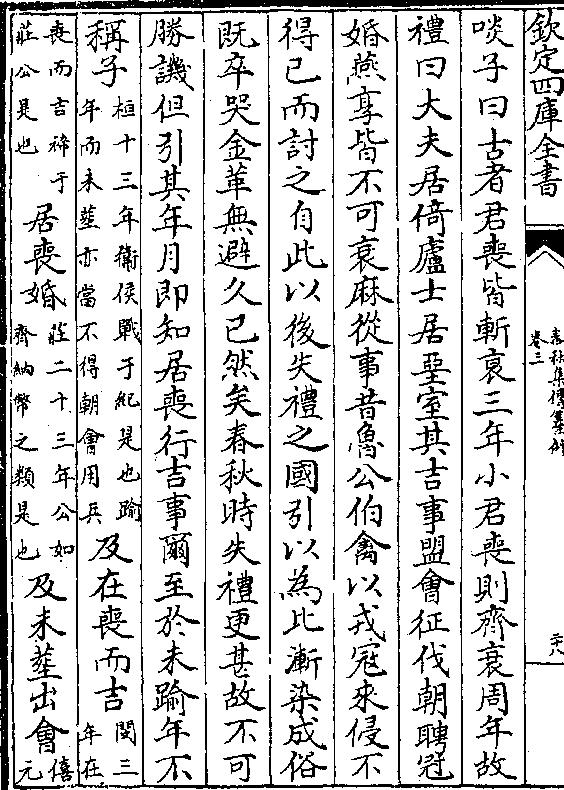 欽定四庫全書
春秋集傳纂例
卷三
啖子曰古者君喪皆斬衰三年小君喪則齊衰周年故
禮曰大夫居倚廬士居堊室其吉事盟會征伐朝聘冠
婚燕享皆不可衰麻從事昔魯公伯禽以戎冦來侵不
得已而討之自此以後失禮之國引以為比漸染成俗
既卒哭金革無避久已然矣春秋時失禮更甚故不可
勝譏但引其年月即知居喪行吉事爾至於未踰年不
稱子桓十三年衛侯戰于紀是也踰年而未葬亦當不得朝會用兵及在喪而吉閔三年在
喪而吉禘于莊公是也居喪婚莊二十三年公如齊納幣之類是也及未葬出會僖元